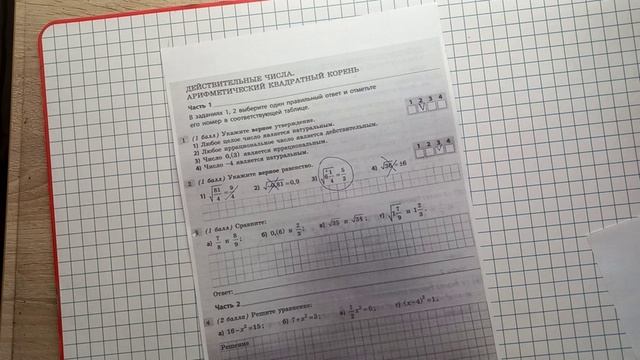 ДЕЙСТВИТЕЛЬНЫЕ ЧИСЛА.
АРИФМЕТИЧЕСКИЙ КВАДРАТНЫЙ КОРЕНЬ
Часть 1
В заданиях 1, 2 выберите один правильный ответ и отметьте
его номер в соответствующей таблице.
1 2 3 4
1 (1 балл) Укажите верное утверждение.
1) Любое целое число является натуральным.
2) Любое иррациональное число является действительным.
3) Число 0,(3) является иррациональным.
4) Число −4 является натуральным.
1 2 3 4
2 (1 балл) Укажите верное равенство.
1) √(81/4) = 9/4 2) √−0,81 = 0,9 3) √(6 1/4) = 5/2 4)
3 (1 балл) Сравните:
а) 7/8 и 8/9; б) 0,(6) и 2/3; в) √35 и √34; г) √(1 7/9) и 1 2/3.
Ответ:
Часть 2
4 (2 балла) Решите уравнение:
а) 16 − x² = 15; б) 7 + x² = 3; в) 1/2 x² = 0; г) (x − 4)² = 1.
Решение